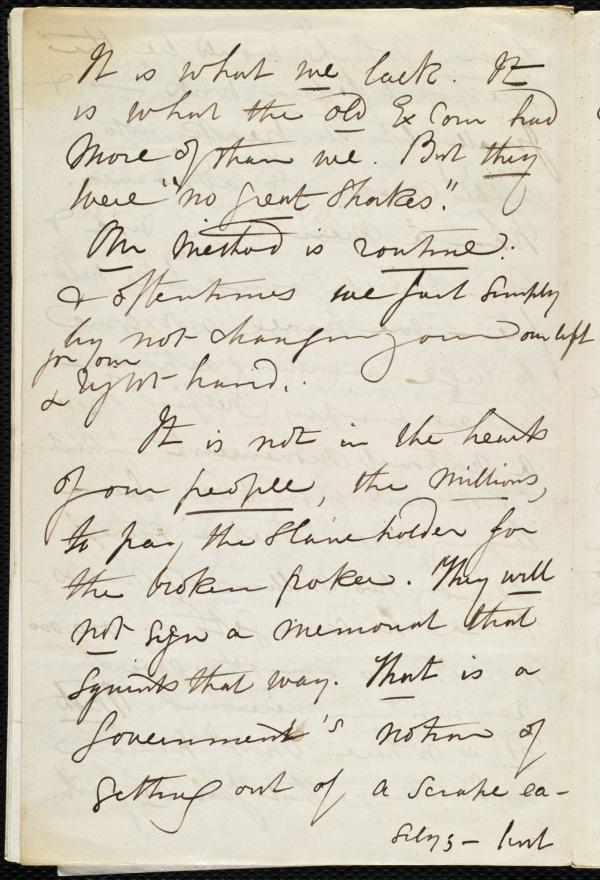 It is what we lack. It
is what the old Ex Com had
more of than we. But they
were "no great Shakes".
Our method is routine:
& oftentimes we fail simply
by not changing our own left
for our
& right-hand.
It is not in the hearts
of our people, the millions,
to pay the Slaveholder for
the broken poker. They will
not sign a memorial that
squints that way. That is a
Government's notion of
getting out of a scrape ea-
sily; - but